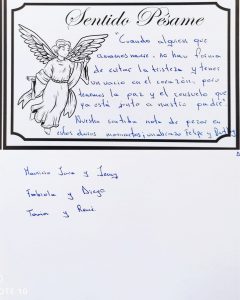 Sentido Pésame
"Cuando alguien que
amamos muere, no hay forma
de evitar la tristeza y tener
un vacio en el corazón, pero
tenemos la paz y el consuelo que
ya está junto a nuestro padre"
Nuestra sentida nota de pesar en
estos duros momentos, un abrazo Felipe y
Mauricio Jara y Jenny
Fabiola y Diego
Tania y René.